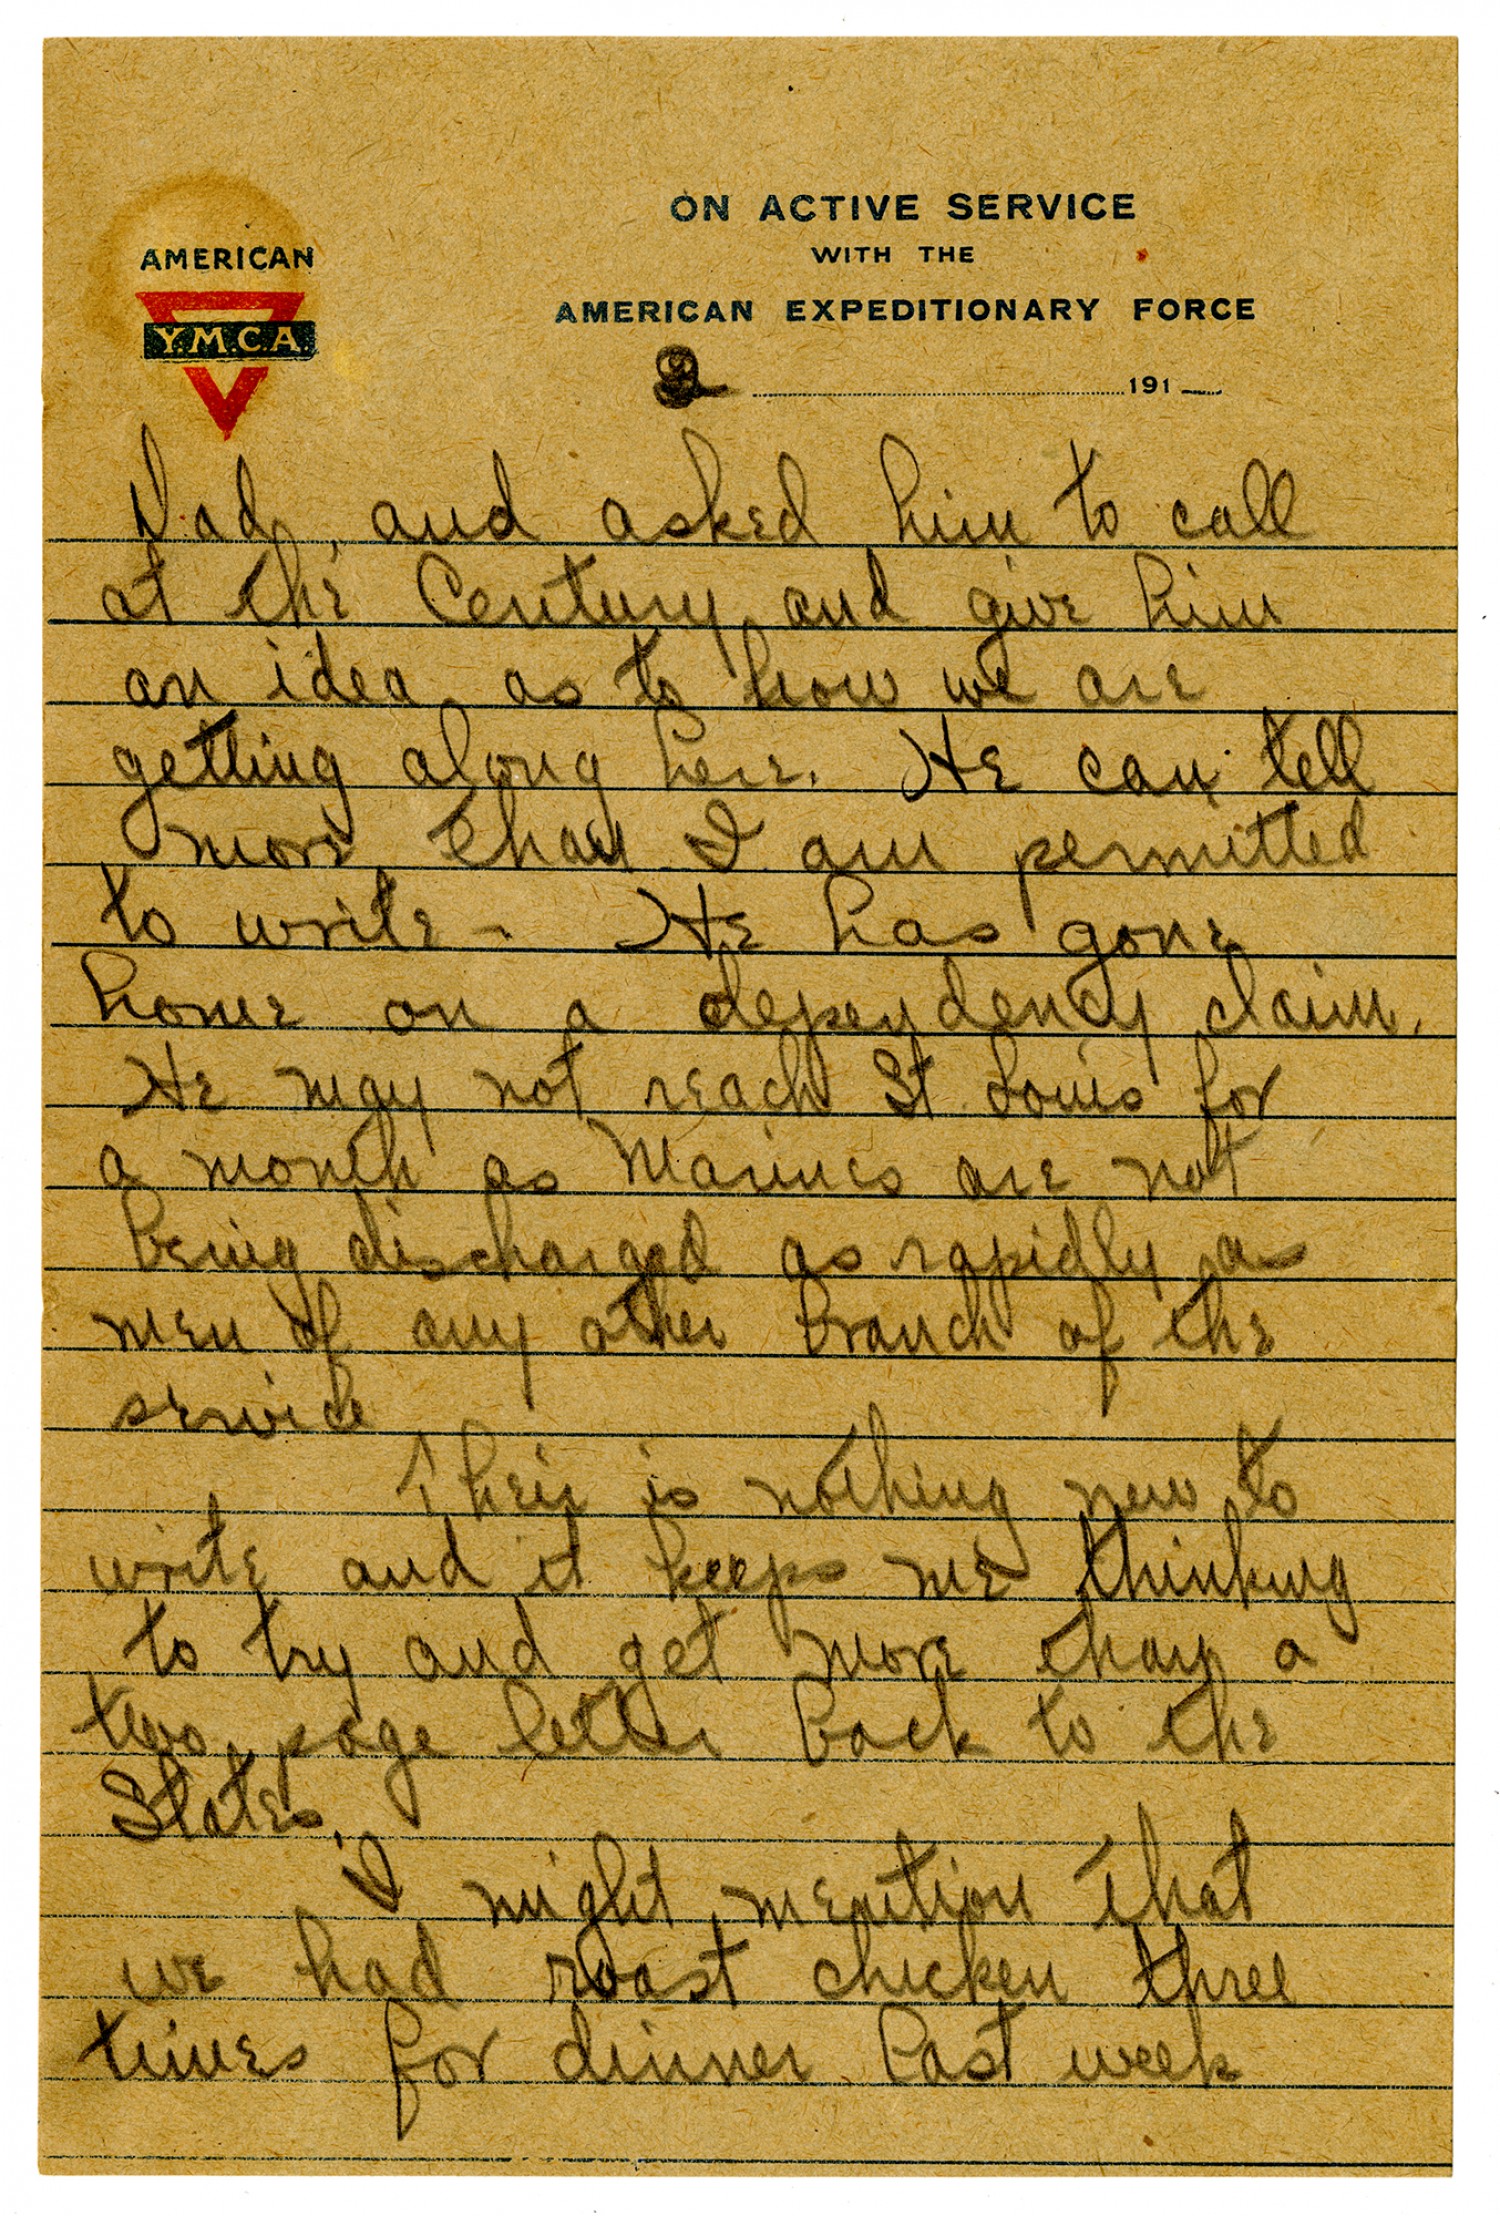 ON ACTIVE SERVICE
WITH THE
AMERICAN EXPEDITIONARY FORCE
AMERICAN
Y.M.C.A.
2 191
Dad, and asked him to call
at the Century and give him
an idea as to how we are
getting along here. He can tell
more than I am permitted
to write - He has gone
home on a dependency claim.
He may not reach St Louis for
a month as Marines are not
being discharged as rapidly as
men of any other branch of the
service
Their is nothing new to
write and it keeps me thinking
to try and get more than a
two page letter back to the
States.
I might mention that
we had roast chicken three
times for dinner last week